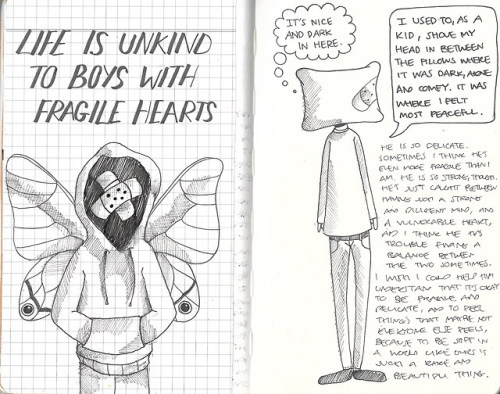 LIFE IS UNKIND
TO BOYS WITH
FRAGILE HEARTS
IT'S NICE
AND DARK
IN HERE
I USED TO, AS A
KID, SHOVE MY
HEAD IN BETWEEN
THE PILLOWS WHERE
IT WAS DARK, ALONE
AND COMFY. IT WAS
WHERE I FELT
MOST PEACEFUL.
HE IS SO DELICATE.
SOMETIMES I THINK HE'S
EVEN MORE FRAGILE THAN I
AM. HE IS SO STRONG, THOUGH.
HE'S JUST CAUGHT BETWEEN
HAVING SUCH A STRONG
AND DILIGENT MIND, AND
A VULNERABLE HEART,
AND I THINK HE HAS
TROUBLE FINDING A
BALANCE BETWEEN
THE TWO SOMETIMES.
I WISH I COULD HELP HIM
UNDERSTAND THAT IT'S OKAY
TO BE FRAGILE AND
DELICATE, AND TO FEEL
THINGS THAT MAYBE NOT
EVERYONE ELSE FEELS,
BECAUSE TO BE SOFT IN
A WORLD LIKE OURS IS
SUCH A RARE AND
BEAUTIFUL THING.